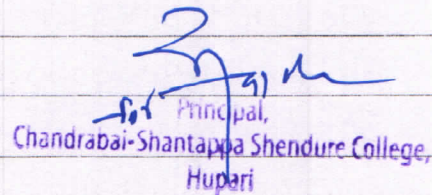 for
Principal,
Chandrabai-Shantappa Shendure College,
Hupari